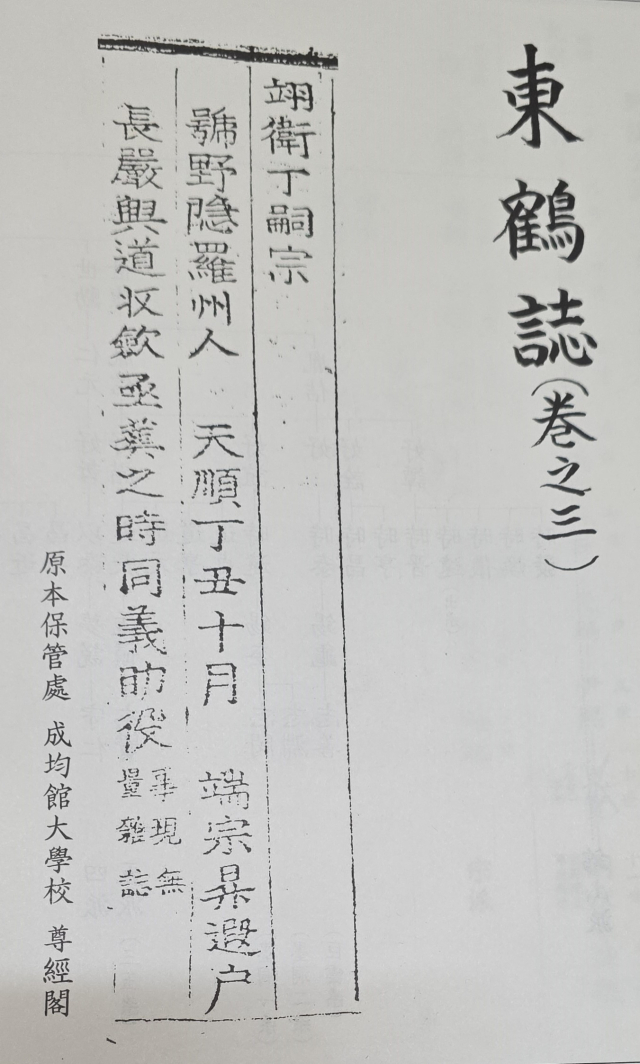 東鶴誌(卷之三)
翊衛丁嗣宗
號野隐羅州人 天順丁丑十月 端宗昇遐户
長嚴興道收歛亟葬之時同義助役 事現無
量雜誌
原本保管處 成均館大學校 尊經閣